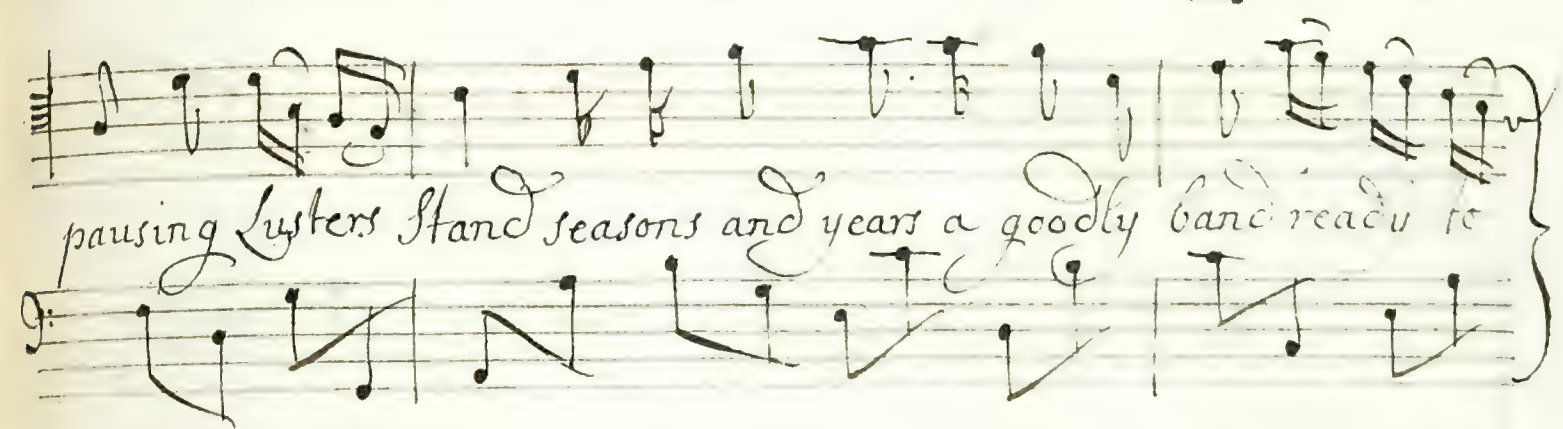 pausing Lusters Stand seasons and years a goodly band ready to